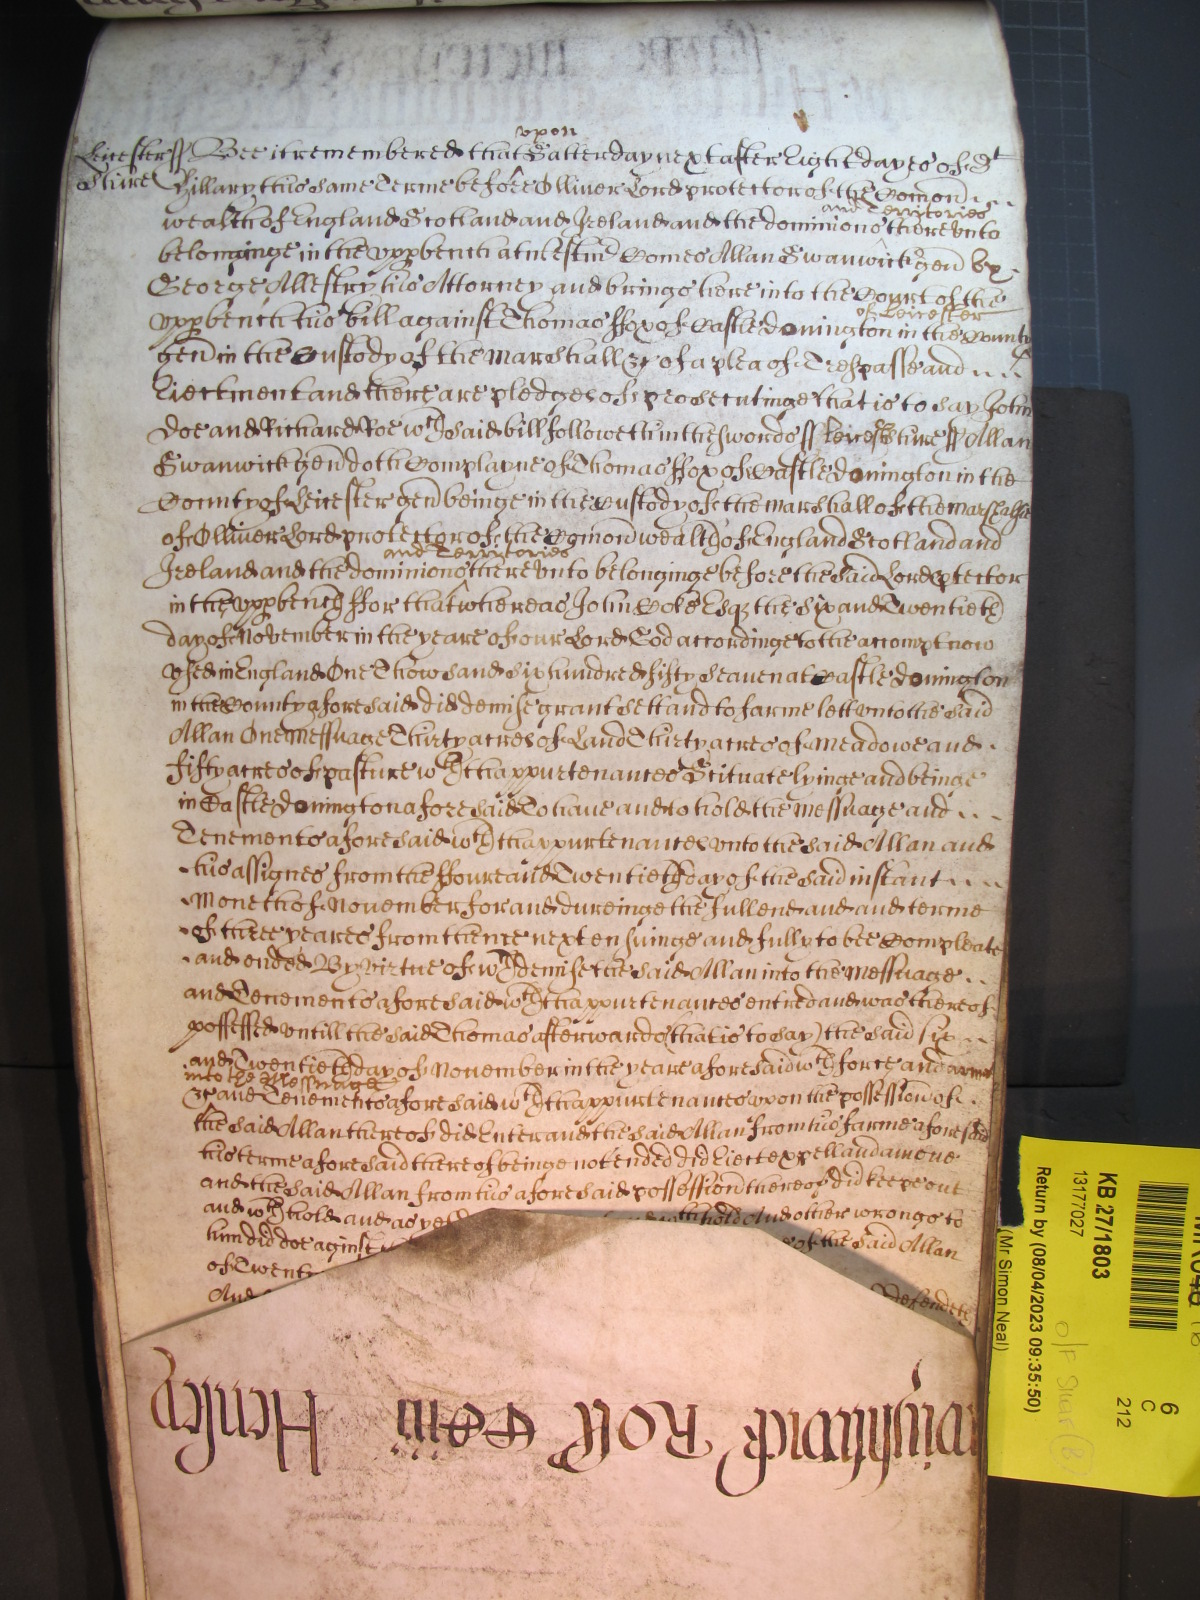 upon
Leicester ss Bee it remembered that Satterday next after Eight dayes of St
Shire Hillary this same Terme before Olliver Lord protector of the Comon
and Territories
wealth of England Scotland and Ireland and the dominions thereunto
belonginge in the upp bench at Westmr Comes Allan Swanwick gen by
George Allestry his Attorney and brings here into the Court of the
of Leicester
upp bench his bill against Thomas ffox of Castle donington in the County
gen in the Custody of the marshall &c of a plea of Trespasse and
Eiectment and there are pledges of prosecutinge that is to say John
Doe and Richard Roe wch said bill followeth in these words ss Leicestshire ss Allan
Swanwick gen doth Complayne of Thomas ffox of Castle donington in the
County of Leicester gen beinge in the Custody of the marshall of the marshalsie
of Olliver Lord protector of the Comon wealth of England Scotland and
and Territories
Ireland and the dominions thereunto belonginge before the said Lord ptector
in the upp bench ffor that whereas John Coke Esqr the Six and Twentieth
day of November in the yeare of our Lord God accordinge to the accompt now
used in England One Thowsand six hundred fifty seaven at Castle donington
in the County aforesaid did demise grant sett and to farme lett unto the said
Allan One messuage Thirty acres of Land Thirty acres of meadowe and
fifty acres of pasture wth thappurtenances Scituate lyinge and beinge
in Castle donington aforesaid To have and to hold the messuage and
Tenements aforesaid wth thappurtenances unto the said Allan and
his assignes from the ffoure and Twentieth day of the said instant
moneth of November for and dureinge the full end and and terme
of three yeares from thence next ensuinge and fully to bee Compleate
and ended By virtue of wch demise the said Allan into the messuage
and Tenements aforesaid wth thappurtenances entred and was thereof
possessed untill the said Thomas afterwards (that is to say) the said six
and Twentieth day of November in the yeare aforesaid wth force and armes
into the Messuage
&c and Tenements aforesaid wth thappurtenances upon the possession of
the said Allan thereof did Enter and the said Allan from his farme aforesaid
his terme aforesaid thereof beinge not ended did Eiect expell and amove
and the said Allan from his aforesaid possession thereof did keepe out
and wth hold and as yet withhold And other wrongs to
him did doe aginst of the said Allan
of Twenty
And Defendeth
Wightwick Roll Henley
KB 27/1803
13177027
Return by (08/04/2023 09:35:50)
(Mr Simon Neal)
6
C
212